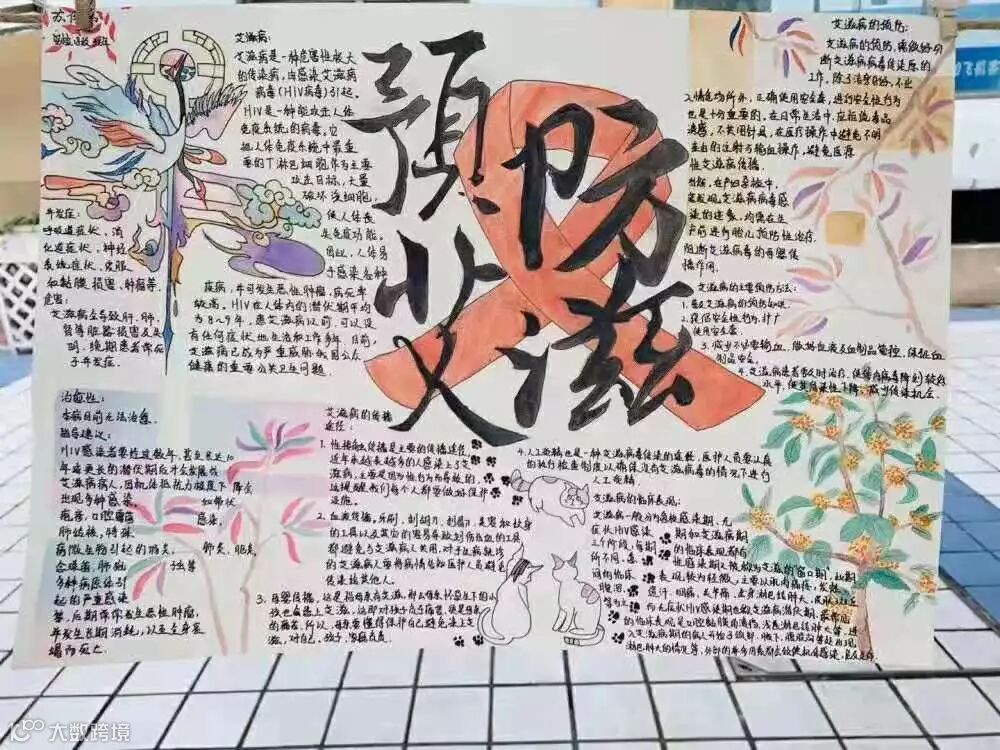 预防
艾滋
艾滋病:
艾滋病是一种危害性极大
的传染病,由感染艾滋病
病毒(HIV病毒)引起。
HIV是一种能攻击人体
免疫系统的病毒。它
把人体免疫系统中最重
要的T淋巴细胞作为主要
攻击目标,大量
破坏该细胞,
使人体丧
失免疫功能。
因此,人体易
于感染各种
疾病,并可发生恶性肿瘤,病死率
较高。HIV在人体内的潜伏期平均
为8~9年,患艾滋病以前,可以没
有任何症状地生活和工作多年。目前,
艾滋病已成为严重威胁我国公众
健康的重要公共卫生问题.
并发症:
呼吸道症状,消
化道症状,神经
系统症状,皮肤
和黏膜损害,肿瘤等.
危害:
艾滋病会导致肝,肺,
肾等脏器损害及失
明,晚期患者常死
于并发症.
治愈性:
本病目前无法治愈.
指导建议:
HIV感染者要经过数年,甚至长达10
年或更长的潜伏期后才会发展成
艾滋病病人,因机体抵抗力极度下降会
出现多种感染,如带状
疱疹,口腔霉菌感染,
肺结核,特殊
病微生物引起的肠炎,肺炎,脑炎,
念珠菌,肺孢子虫等
多种病原体引
起的严重感染
等,后期常常发生恶性肿瘤,
并发生长期消耗,以至全身衰
竭而死亡.
艾滋病的传播
途径:
1. 性接触传播是主要的传播途径
近年来越来越多的人感染上了艾
滋病,主要是因为性行为而导致的,
这提醒我们每个人都要做好保护
措施.
2. 血液传播,牙刷,刮胡刀,剃须刀,是容易扯身
的工具以及其他的容易导致划伤出血的工具
都避免与艾滋病人共用,对于生病就诊
的艾滋病人要将病情告知医护人员避免
传染给其他人.
3. 母婴传播,这是指母亲有艾滋,那么母亲怀孕生下的小
孩也会患上艾滋,这那对孩子与与痛苦,就是母亲
的痛苦.所以,母亲要懂得保护自己避免染上艾
滋,对自己,孩子,家庭负责.
4.人工受精也是一种艾滋病毒传染的途径,医护人员要认真
的执行检查制度以确保没有艾滋病毒的情况下进行
人工受精
艾滋病的临床表现:
艾滋病一般分为急性感染期,无
症状HIV感染期和艾滋病期
三个阶段,每期的临床表现都有
所不同,急性感染期又被称为艾滋的窗口期,此期
艾滋病的预防:
艾滋病的预防,需做好切
断艾滋病病毒传染原的
工作,除了洁身自好,不出
入情色场所外,正确使用安全套,进行安全性行为
也是十分重要的,在日常生活中,应拒绝毒品
诱惑,不共用针具,在医疗操作中避免不明
来血的注射与输血操作,避免医源
性艾滋病传播.
当然,在产妇系统中,
若发现艾滋病病毒感
染的迹象,均需在生
产前进行胎儿预防性治疗.
阻断艾滋病毒的母婴传
播作用.
艾滋病的主要预防方法:
1. 普及艾滋病的预防知识.
2. 提倡安全性行为,推广
使用安全套.
3. 减少不必要输血,严格血液及血制品管控,保证血
制品安全.
4. 艾滋病患者要及时治疗,使得病毒降到较低
水平,使其传染性下降,减少传染机会.
大数跨境